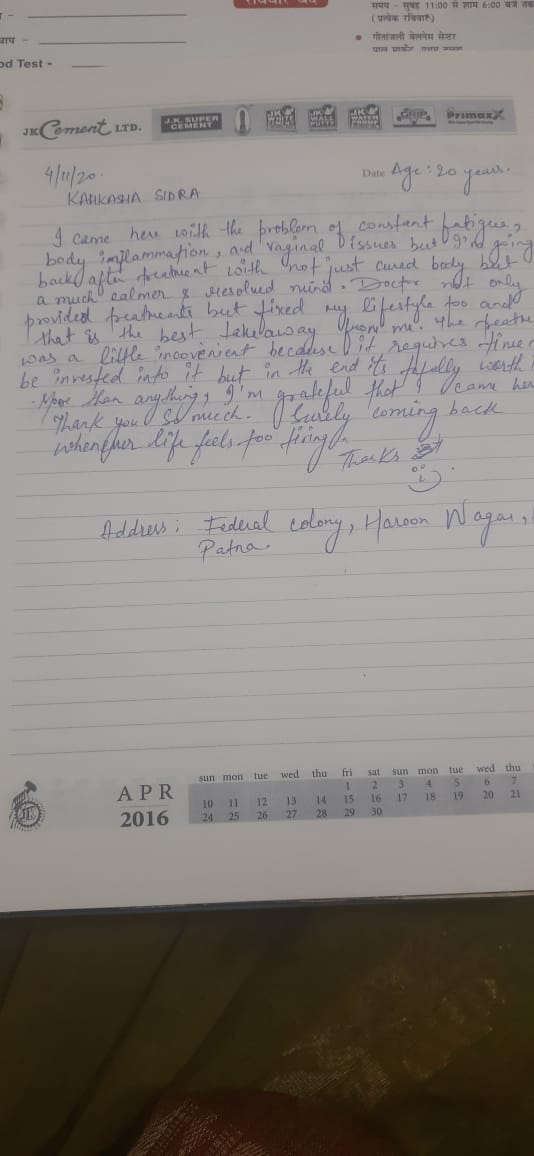 समय - सुबह 11:00 से शाम 6:00 बजे तक
(प्रत्येक रविवार)
गीतांजली वेलनेस सेन्टर
od Test -
JK Cement LTD.
J.K. SUPER CEMENT
JK WHITE CEMENT
JK WALL PUTTY
JK WATER PROOF
PrimaxX
4/11/20.
Date Age: 20 years.
KAHKASHA SIDRA
I came here with the problem of constant fatigue,
body inflammation, and vaginal issues but I'm going
back after treatment with not just cured body but
a much calmer & resolved mind. Doctor not only
provided treatments but fixed my lifestyle too and
that is the best takeaway from me. The
was a little incovenient because it requires time
be invested into it but in the end it's totally worth
. More than anything, I'm grateful that I came
Thank you so much. Surely coming back
whenever life feels too tiring.
Thanks
Address: Federal colony, Haroon Nagar,
Patna.
APR
2016
sun mon tue wed thu fri sat sun mon tue wed thu
1 2 3 4 5 6 7
10 11 12 13 14 15 16 17 18 19 20 21
24 25 26 27 28 29 30
JK